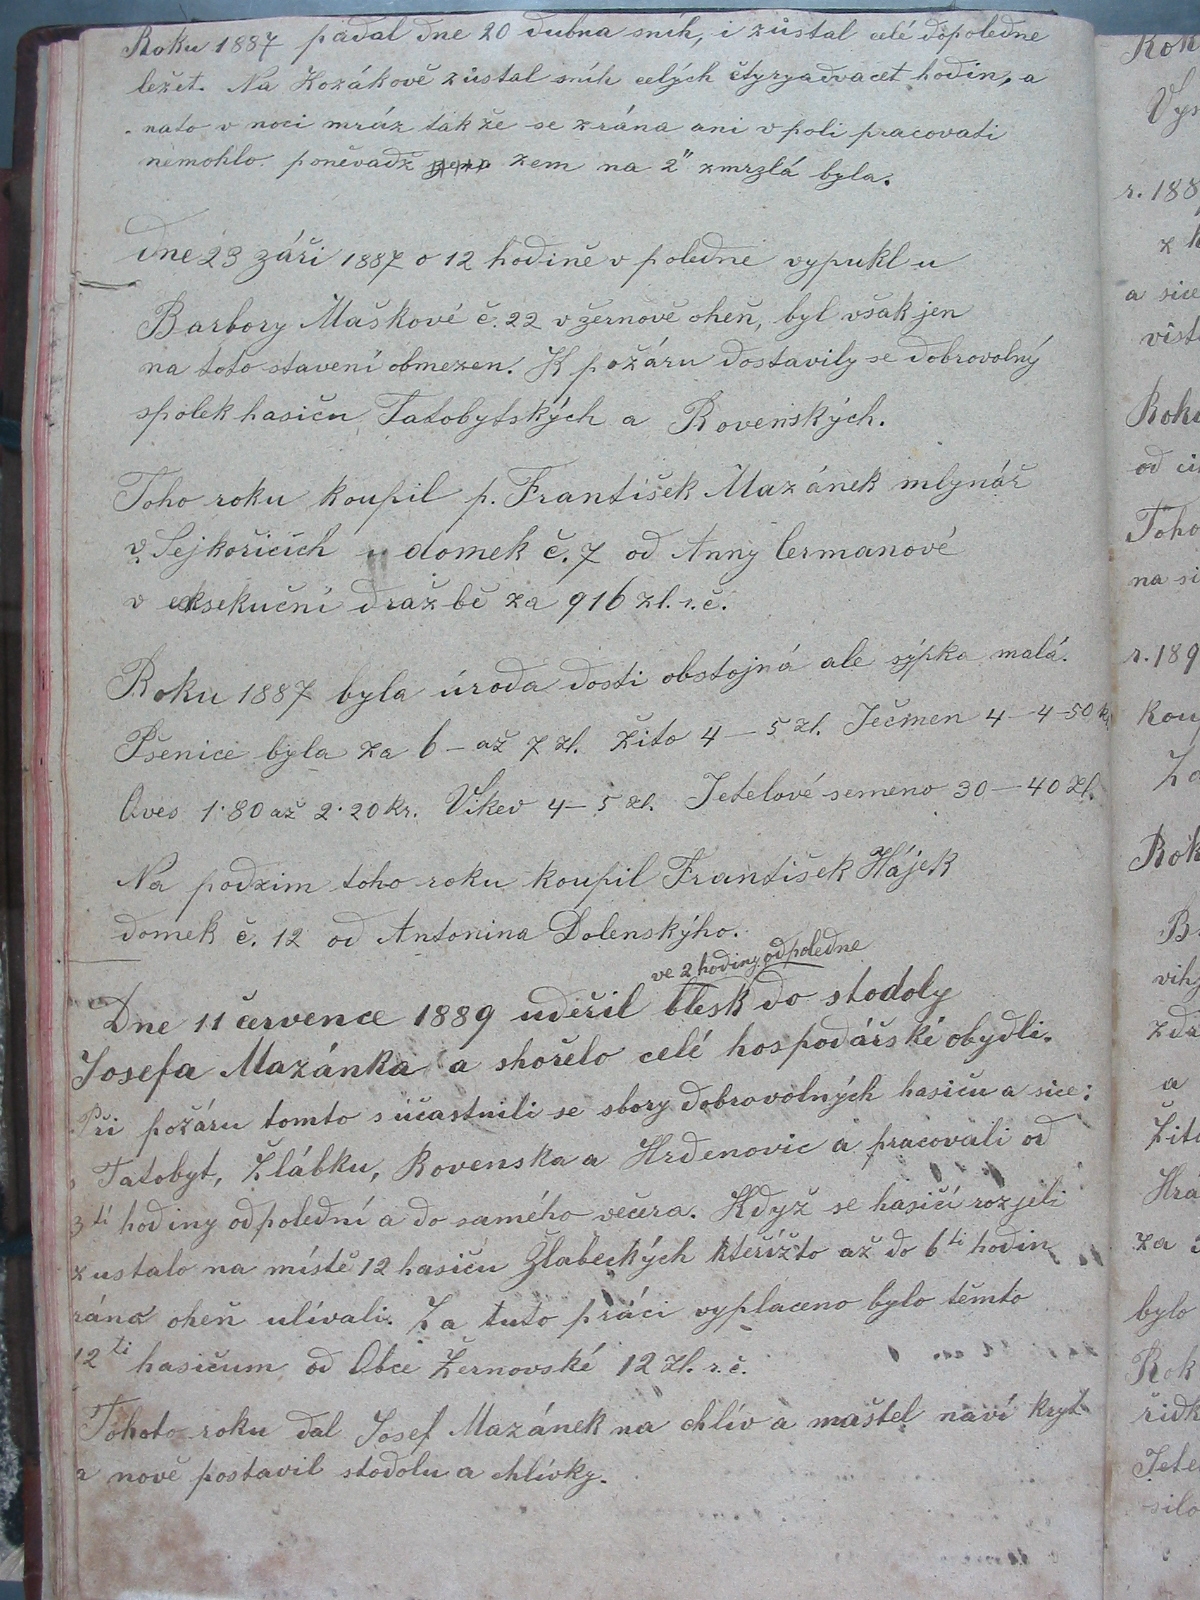 Roku 1887 padal dne 20 dubna sníh, i zůstal celé dopoledne
ležet. Na Kozákově zůstal sníh celých čtyryadvacet hodin, a
nato v noci mráz tak že se zrána ani v poli pracovati
nemohlo. poněvadž zem na 2" zmrzlá byla.
Dne 23 záři 1887 o 12 hodině v poledne vypukl u
Barbory Maškové č. 22 v žernově oheň, byl však jen
na toto stavení obmezen. K požáru dostavily se dobrovolný
spolek hasičů Tatobytských a Rovenských.
Toho roku koupil p. František Mazánek mlynář
v Sejkořicích domek č. 7 od Anny Cermanové
v eksekuční dražbě za 916 zl. r. č.
Roku 1887 byla úroda dosti obstojná ale sýpka malá.
Pšenice byla za 6 – až 7 zl. Žito 4 – 5 zl. Ječmen 4 – 4-50 kr
Oves 1·80 až 2·20 kr. Vikev 4 – 5 zl. Jetelové semeno 30 – 40 zl.
Na podzim toho roku koupil František Hájek
domek č. 12 od Antonina Dolenskýho.
ve 2 hodiny odpoledne
Dne 11 července 1889 udeřil blesk do stodoly
Josefa Mazánka a shořelo celé hospodářské obydli.
Při požáru tomto súčastnili se sbory dobrovolných hasičů a sice:
Tatobyt, Žlábku, Rovenska a Hrdenovic a pracovali od
3tí hodiny odpolední a do samého večera. Když se hasičí rozjeli
zustalo na místě 12 hasičů Žlabeckých kteřížto až do 6ti hodin
ráno oheň ulívali. Za tuto práci vyplaceno bylo těmto
12ti hasičum od Obce Žernovské 12 zl. r. č.
Tohoto roku dal Josef Mazánek na chlív a maštel naví kryt
a nově postavil stodolu a chlívky.
Rok
Vys
r. 188
z k
a sice
Roku
Toho
na si
r. 189
kou
Rok
vihy
a
Žito
Hra
za
bylo
Rok
Jete